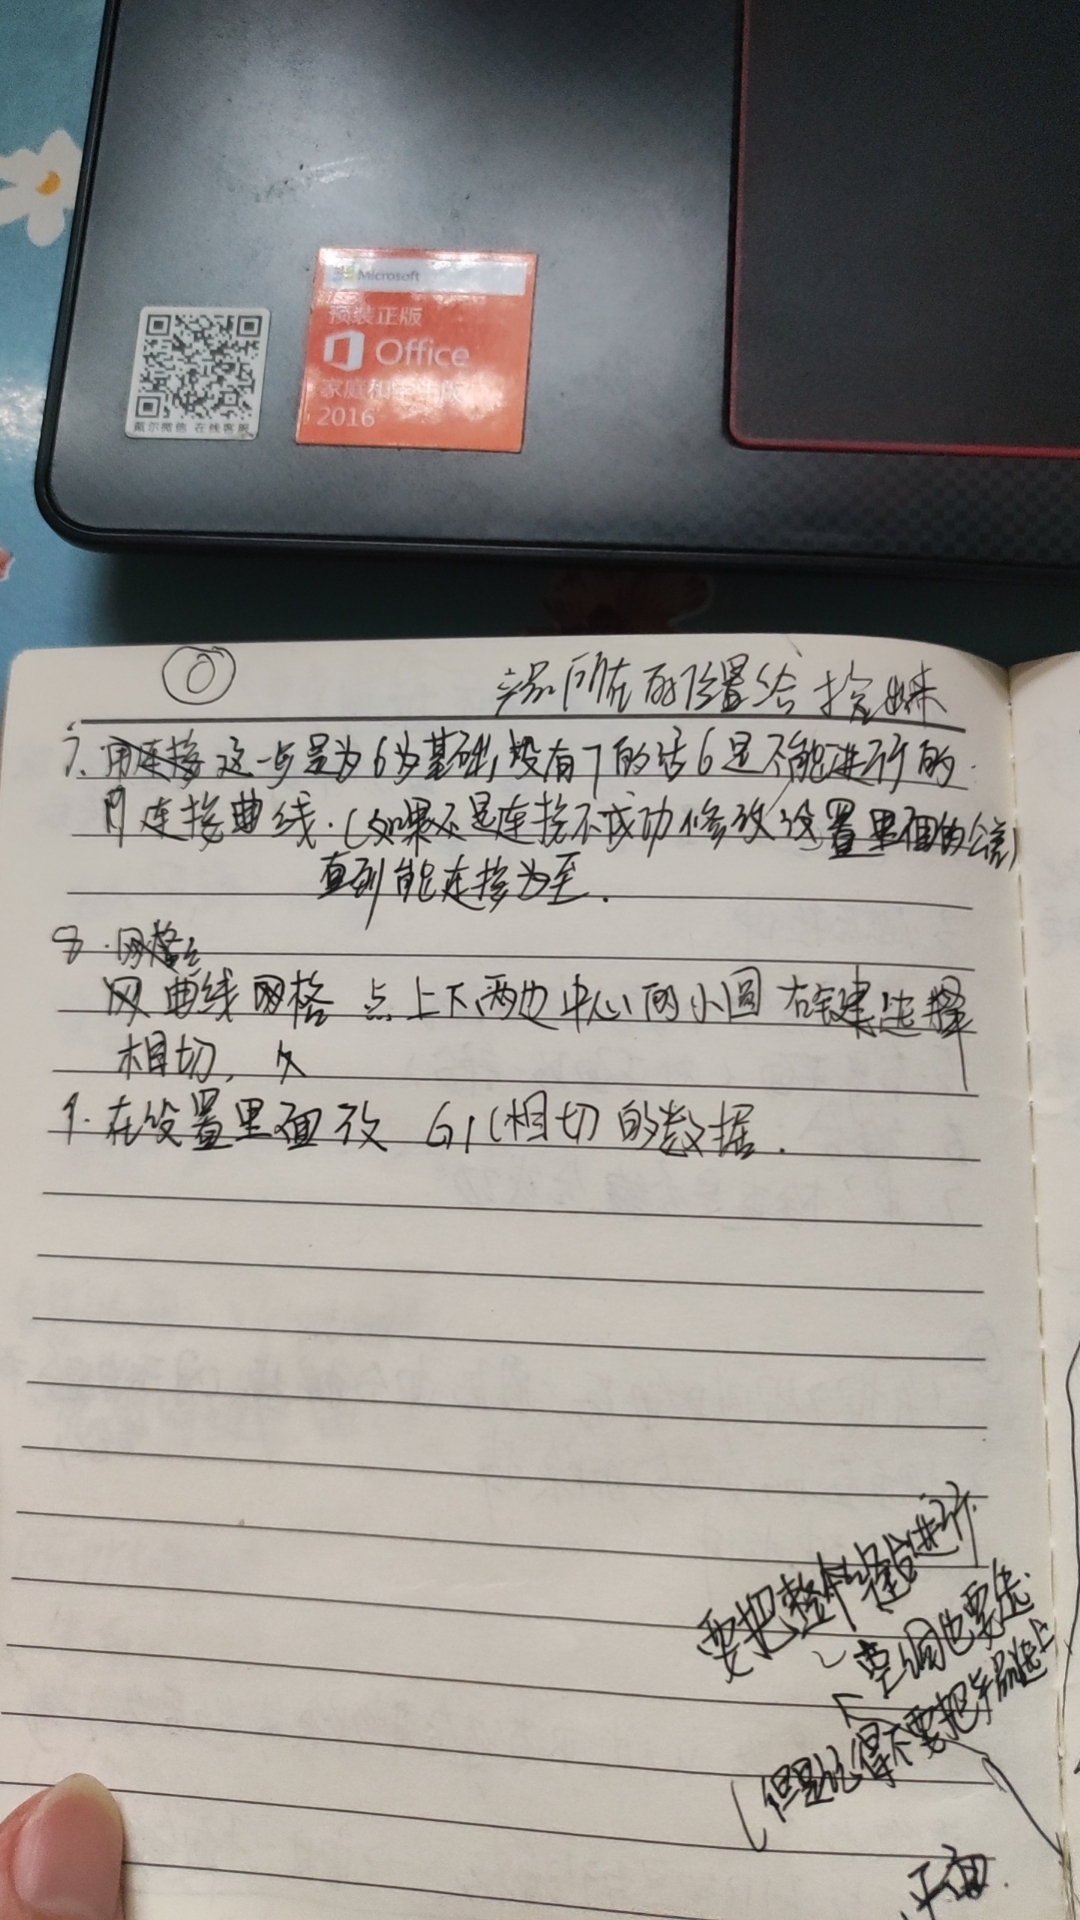 Microsoft
预装正版
Office
家庭和学生版
2016
戴尔微信 在线客服
所在的位置给
7. 用连接这一步是为6为基础,没有7的话6是不能进行的.
用连接曲线.(如果不是连接不成功修改设置里面的公差)
直到能连接为至.
8.网格
网曲线网格 点上下两边中心的小圆 右键选择
相切,
9.在设置里面改 G1(相切)的数据.
要把整个 进行
空洞也要选
(但是记得不要把 选上
平面.